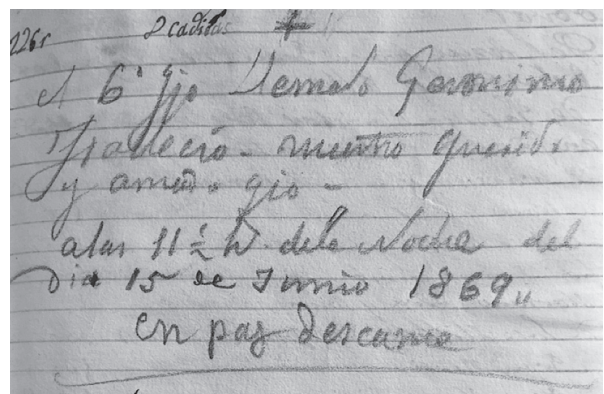 226r 2 cadiras +
el 6° gjo llemado Geronimo
Fradeció - nuestro querido
y amado gio -
alas 11 ½ h. dela Noche del
Dia 15 de Junio 1869,,
en paz descanse